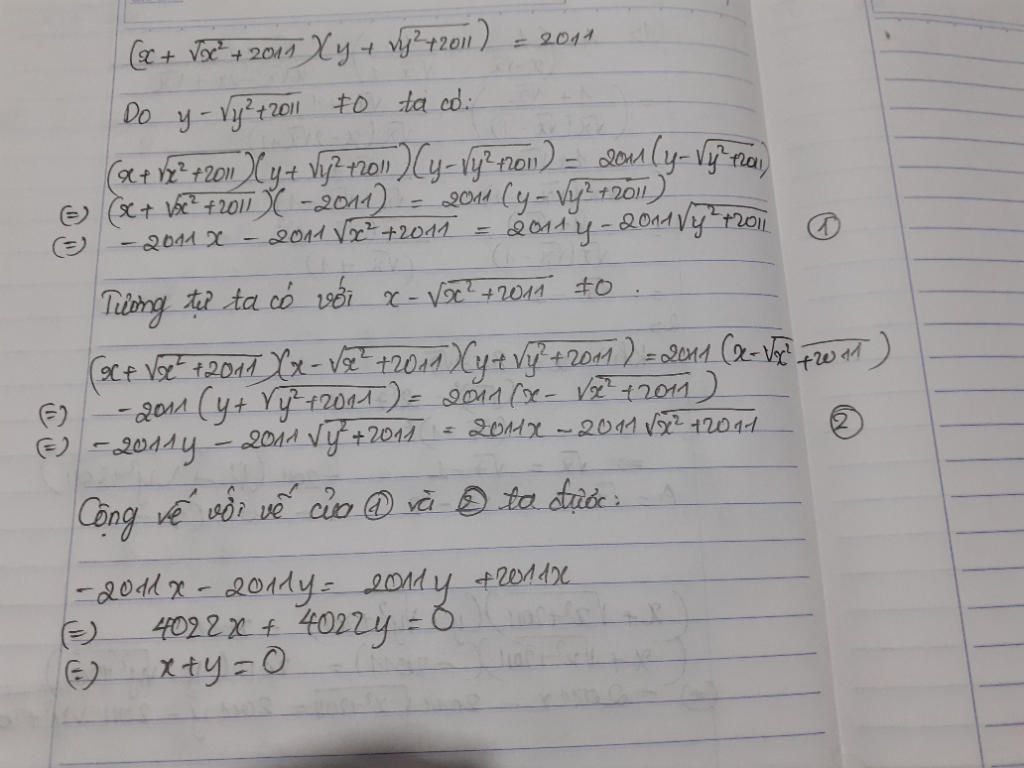 (x + √(x² + 2011))(y + √(y² + 2011)) = 2011
Do y - √(y² + 2011) ≠ 0 ta có:
(x + √(x² + 2011))(y + √(y² + 2011))(y - √(y² + 2011)) = 2011(y - √(y² + 2011))
(=) (x + √(x² + 2011))(-2011) = 2011(y - √(y² + 2011))
(=) -2011x - 2011√(x² + 2011) = 2011y - 2011√(y² + 2011) ①
Tương tự ta có với x - √(x² + 2011) ≠ 0.
(x + √(x² + 2011))(x - √(x² + 2011))(y + √(y² + 2011)) = 2011(x - √(x² + 2011))
(=) -2011(y + √(y² + 2011)) = 2011(x - √(x² + 2011))
(=) -2011y - 2011√(y² + 2011) = 2011x - 2011√(x² + 2011) ②
Cộng vế với vế của ① và ② ta được:
-2011x - 2011y = 2011y + 2011x
(=) 4022x + 4022y = 0
(=) x + y = 0